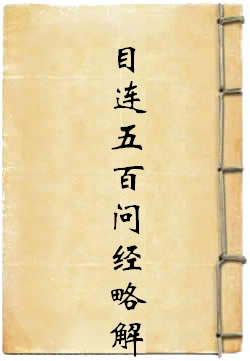 目连五百问经略解